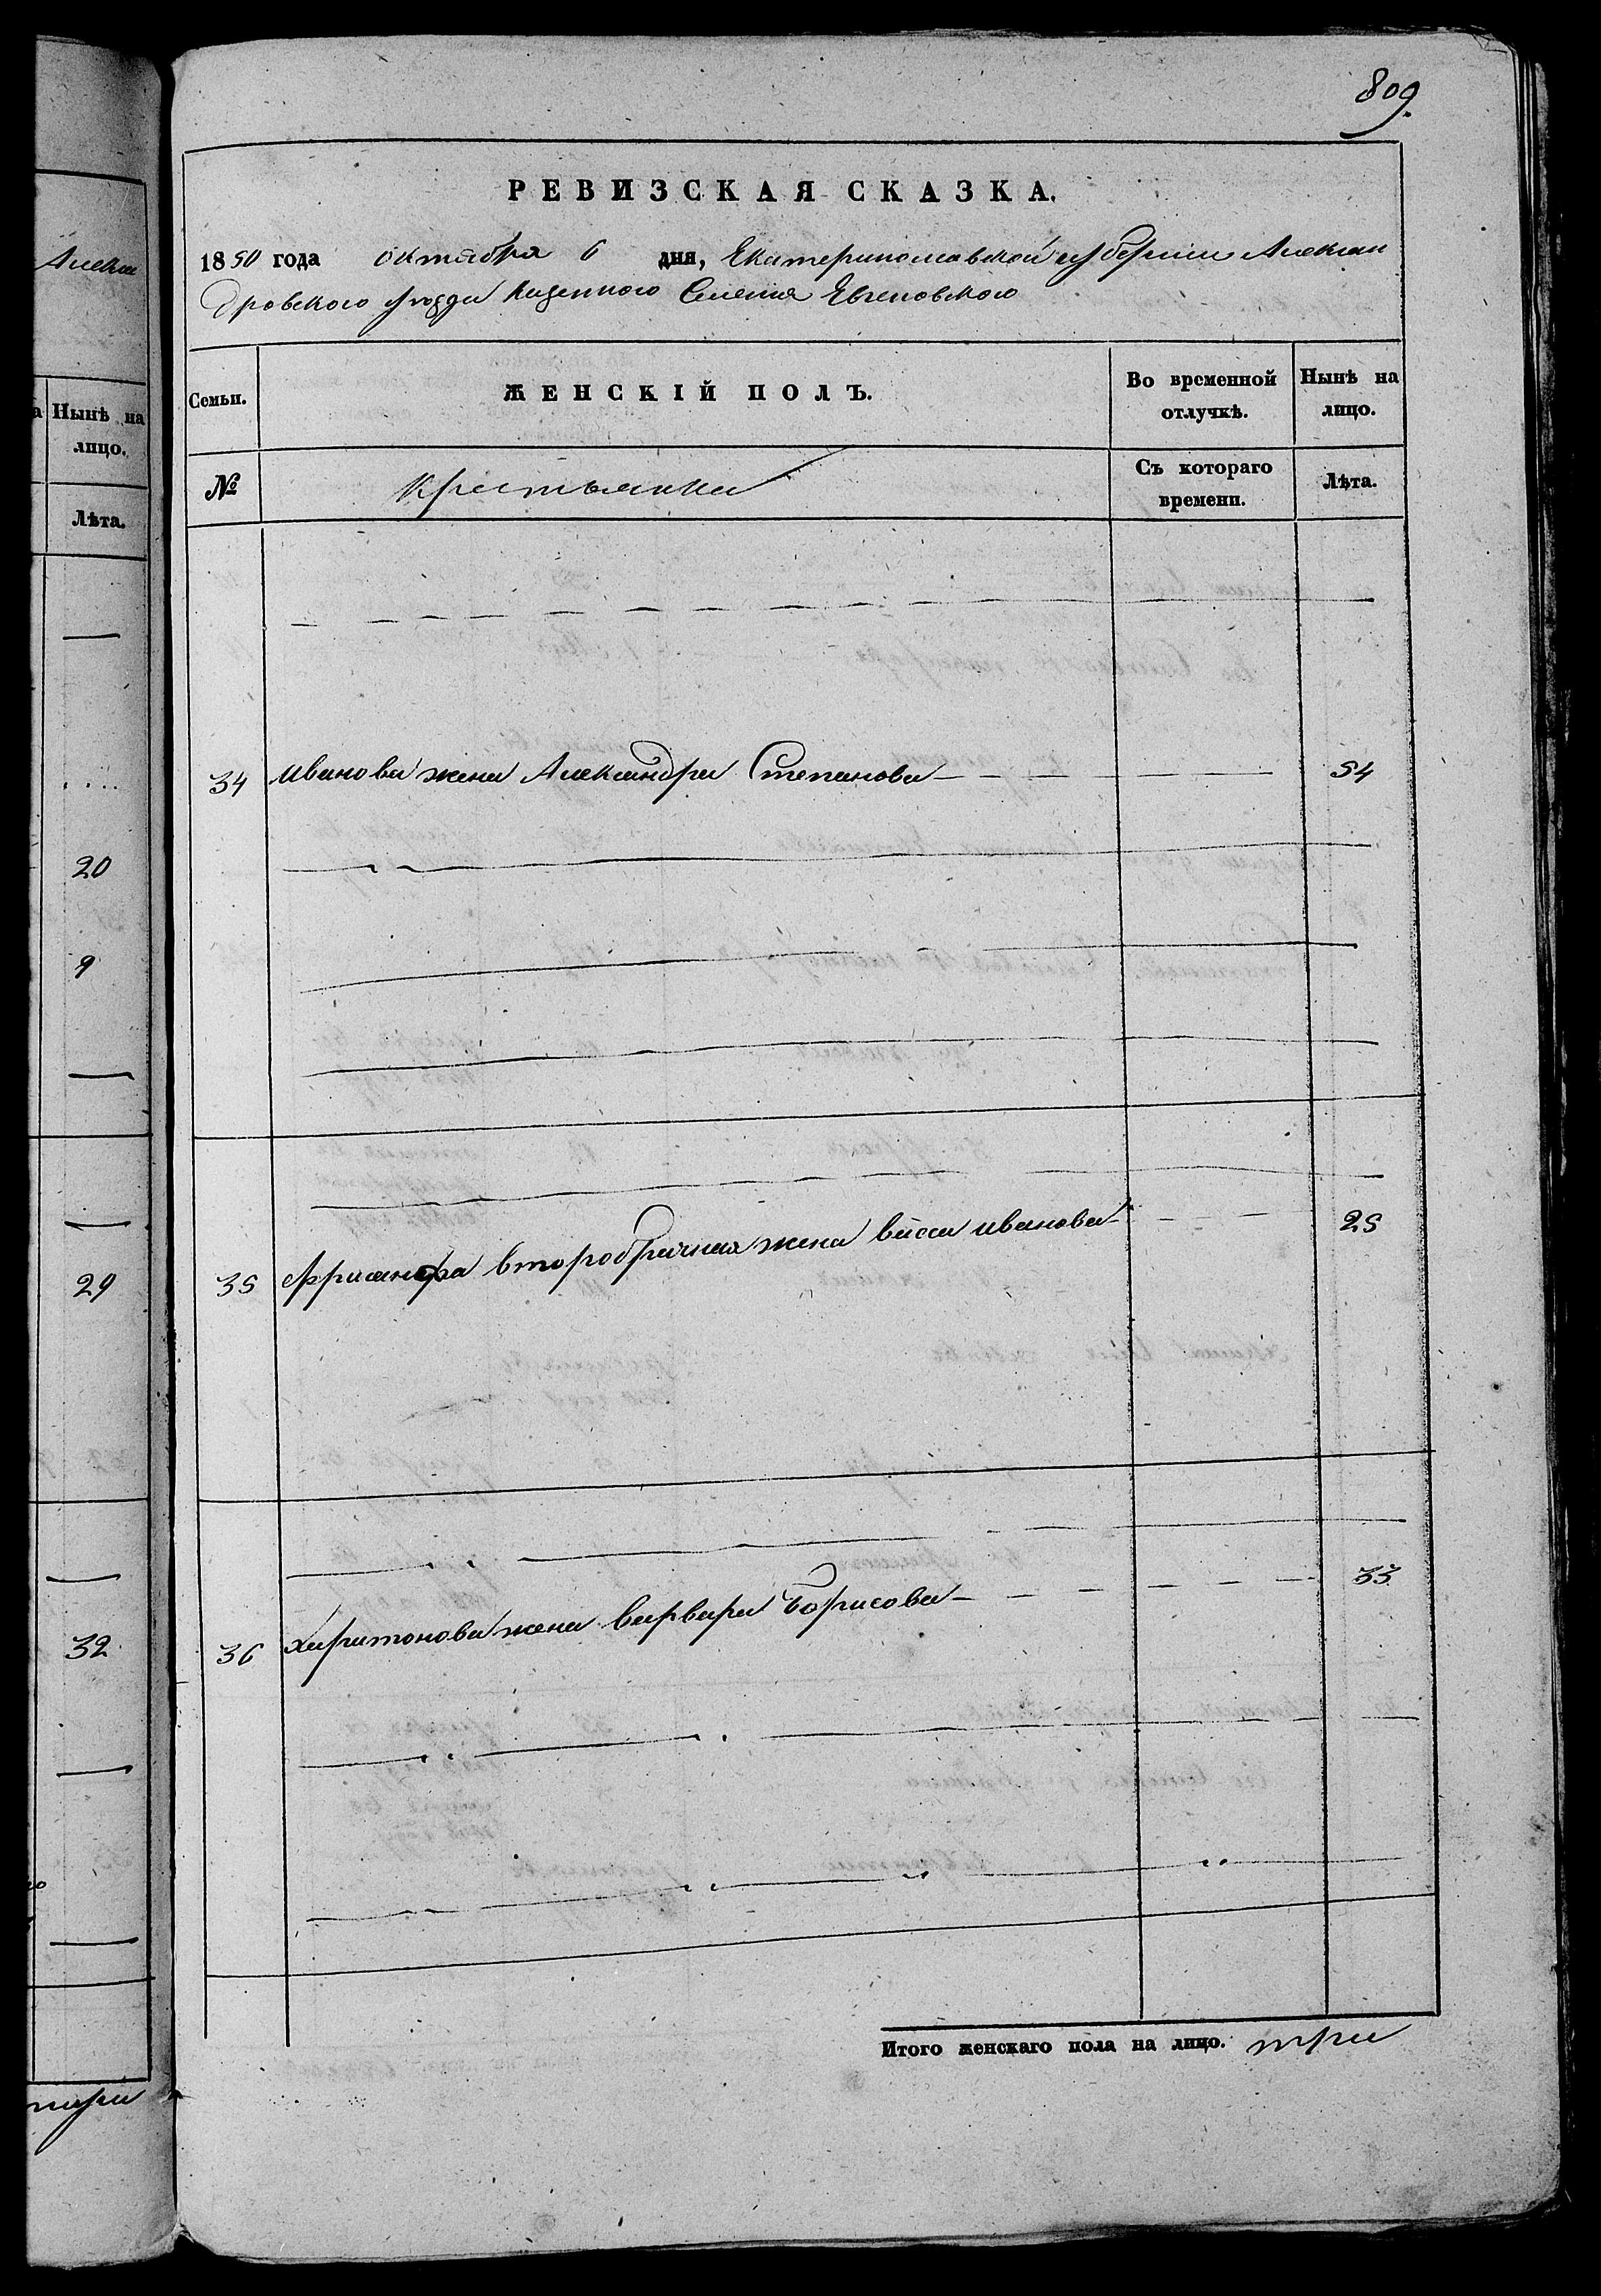 809.
РЕВИЗСКАЯ СКАЗКА.
1850 года октября 6 дня, Екатеринославской губернии Алексан
дровского уезда Казенного Селения Евгеновского
Семьи.
ЖЕНСКІЙ ПОЛЪ.
Во временной отлучкѣ.
Нынѣ на лицо.
№
Крестьянки
Съ котораго времени.
Лѣта.
34 Иванова жена Александра Степанова 54
35 второбрачная жена васса иванова 25
36 харитонова жена варвара Борисова 33
Итого женскаго пола на лицо. три
Алекса
а Нынѣ на
лицо.
Лѣта.
20
9
29
32